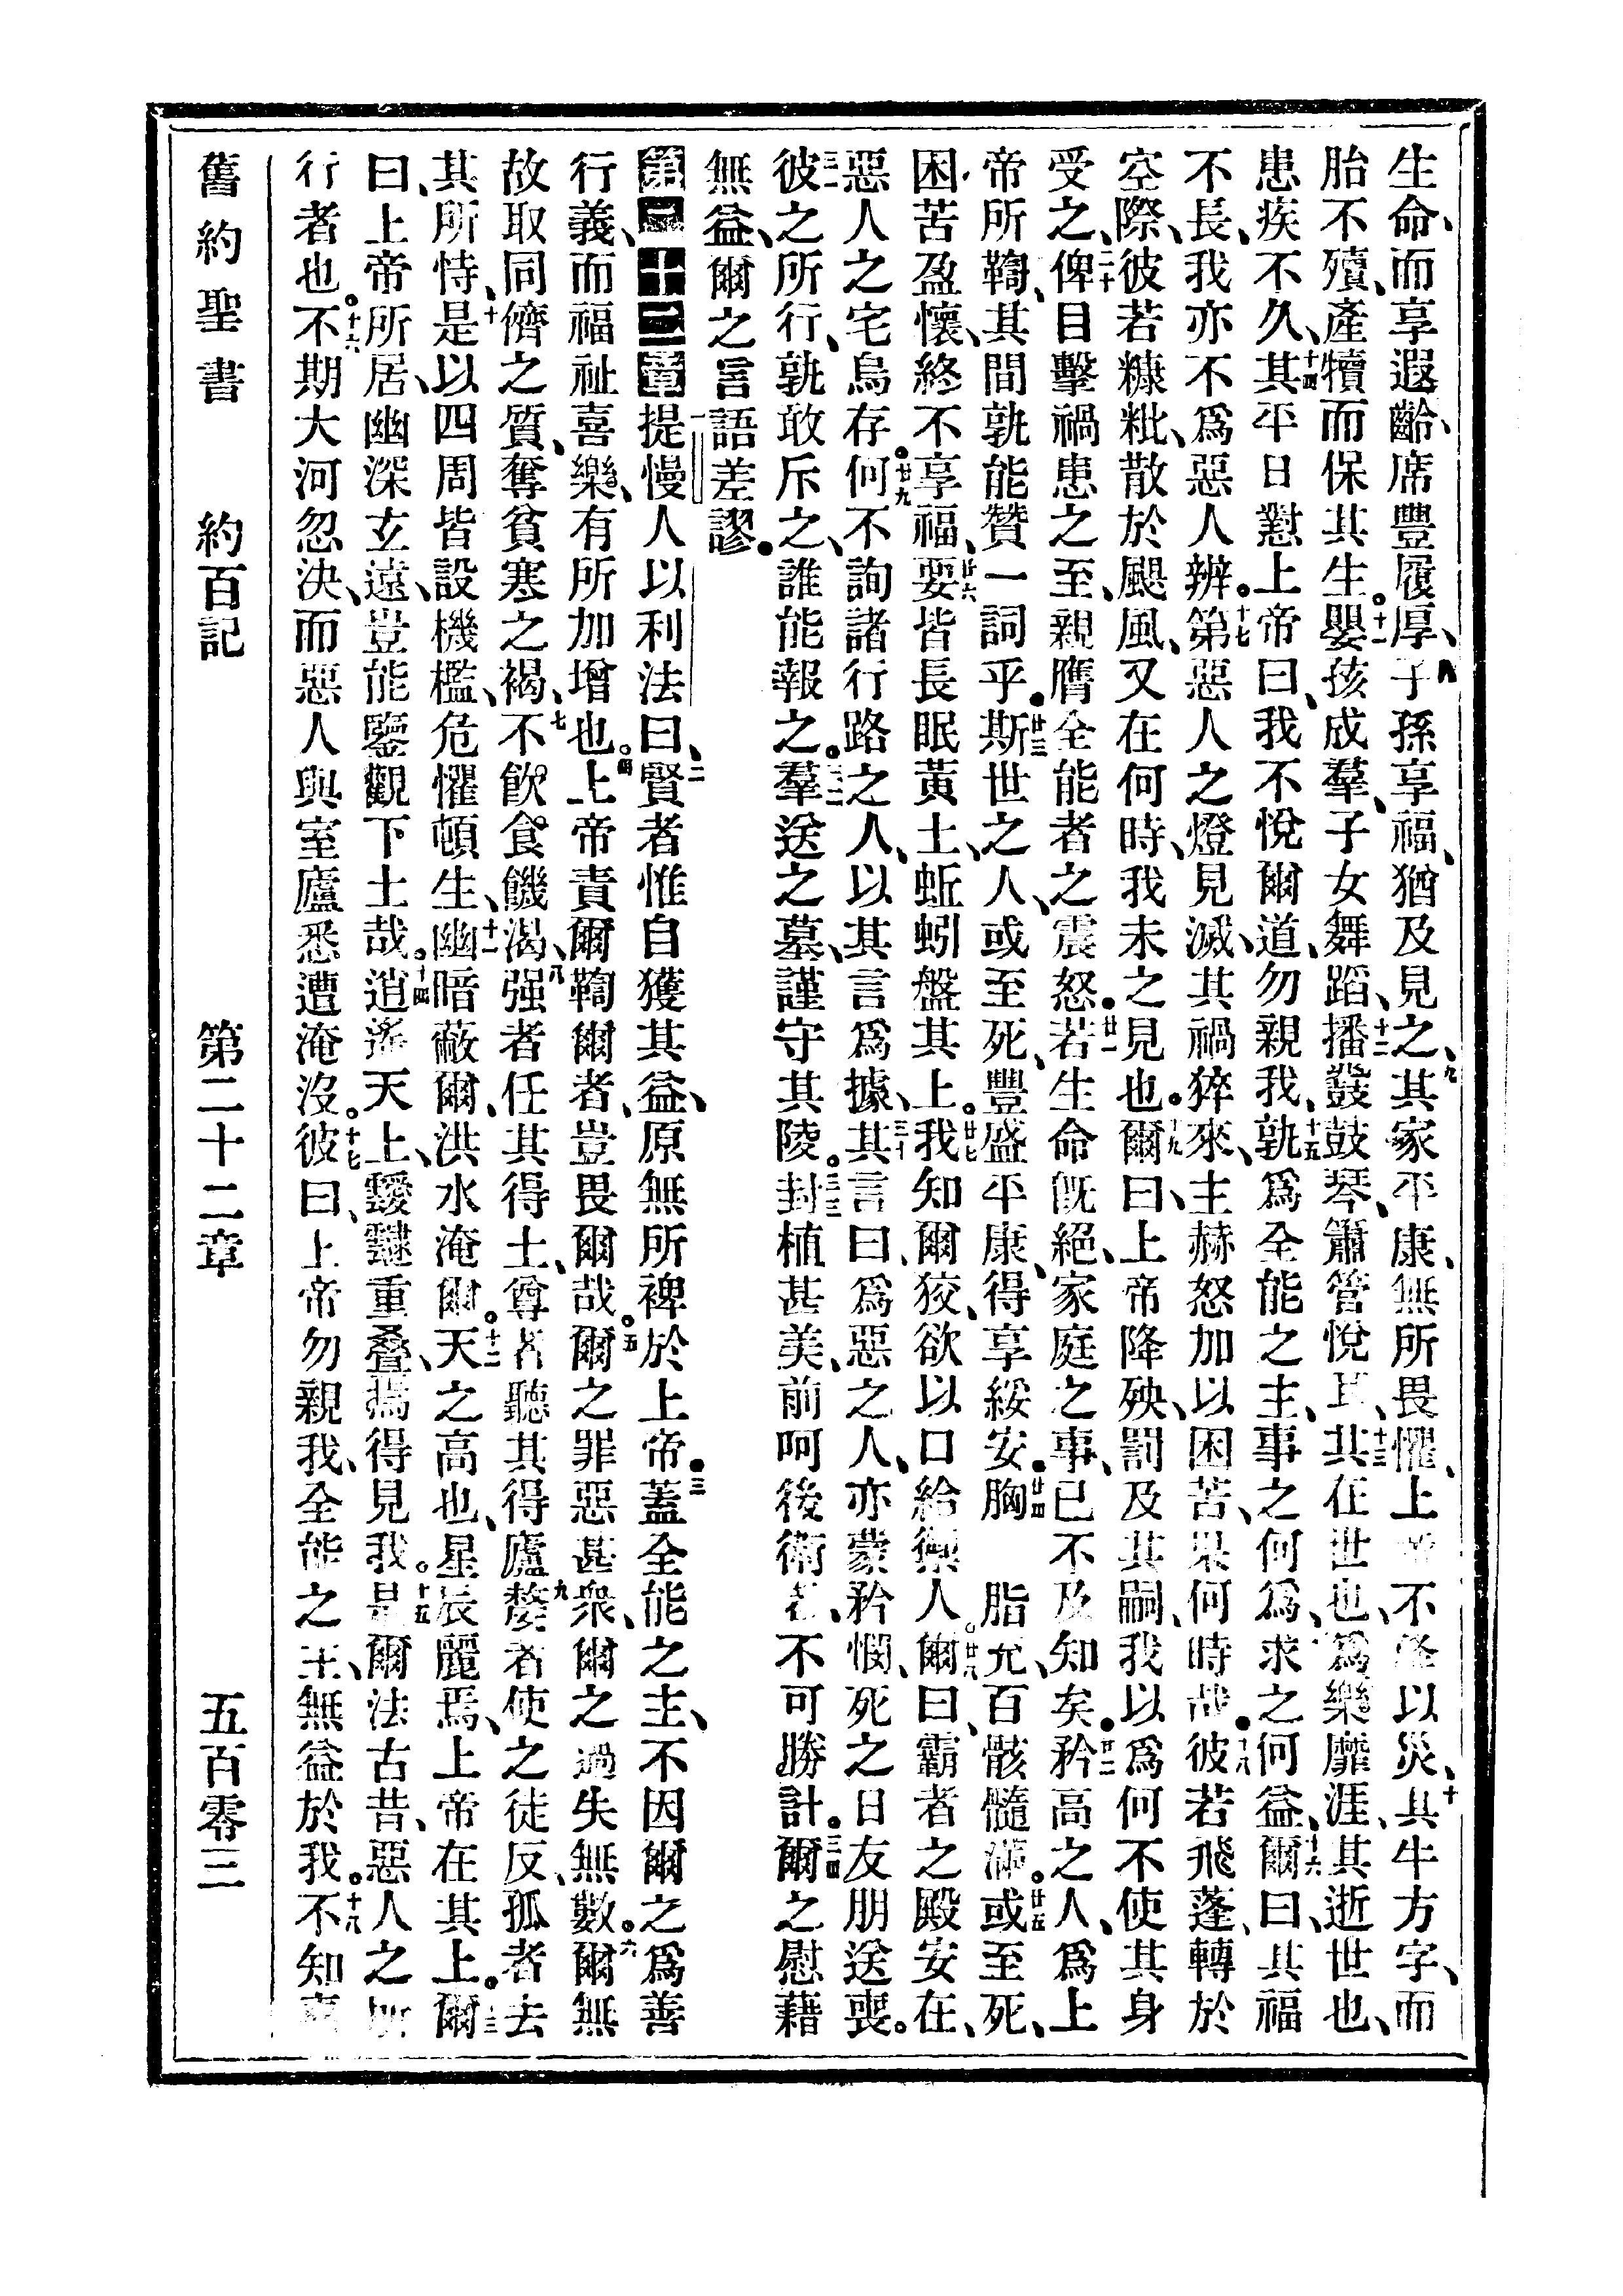 生命、而享遐齡、席豐履厚、八子孫享福、猶及見之、九其家平康、無所畏懼、上帝不降以災、十其牛方字、而
胎不殰、產犢而保其生。十一嬰孩成羣、子女舞蹈、十二播鼗鼓琴、簫管悅耳、十三其在世也、爲樂靡涯、其逝世也、
患疾不久、十四其平日懟上帝曰、我不悅爾道、勿親我、十五孰爲全能之主、事之何爲、求之何益、十六爾曰、其福
不長、我亦不爲惡人辨。十七第惡人之燈見滅、其禍猝來、主赫怒加以困苦、果何時哉。十八彼若飛蓬、轉於
空際、彼若糠粃、散於颶風、又在何時、我未之見也。十九爾曰、上帝降殃、罰及其嗣、我以爲何不使其身
受之、二十俾目擊禍患之至、親膺全能者之震怒。廿一若生命旣絕、家庭之事、已不及知矣。廿二矜高之人、爲上
帝所鞫、其間孰能贊一詞乎。廿三斯世之人、或至死、豐盛平康、得享綏安。廿四胸 脂充、百骸髓滿。廿五或至死、
困苦盈懷、終不享福、廿六要皆長眠黃土、蚯蚓盤其上。廿七我知爾狡、欲以口給禦人。廿八爾曰、霸者之殿安在、
惡人之宅烏存。廿九何不詢諸行路之人、以其言爲據、三十其言曰、爲惡之人、亦蒙矜憫、死之日友朋送喪。
三一彼之所行、孰敢斥之、誰能報之。三二羣送之墓、謹守其陵。三三封植甚美、前呵後衛者、不可勝計。三四爾之慰藉
無益、爾之言語差謬。
第二十二章 一提慢人以利法曰、二賢者惟自獲其益、原無所裨於上帝。三蓋全能之主、不因爾之爲善
行義、而福祉喜樂、有所加增也。四上帝責爾鞫爾者、豈畏爾哉。五爾之罪惡甚衆、爾之過失無數。六爾無
故取同儕之質、奪貧寒之褐、七不飮食饑渴、八强者任其得土、尊者聽其得廬、九嫠者使之徒反、孤者去
其所恃、十是以四周皆設機檻、危懼頓生、十一幽暗蔽爾、洪水淹爾。十二天之高也、星辰麗焉、上帝在其上。十三爾
曰、上帝所居、幽深玄遠、豈能鑒觀下土哉。十四逍遙天上、靉靆重叠、焉得見我。十五是爾法古昔、惡人之所
行者也。十六不期大河忽決、而惡人與室廬悉遭淹沒。十七彼曰、上帝勿親我、全能之主、無益於我。十八不知
舊約聖書 約百記 第二十二章 五百零三